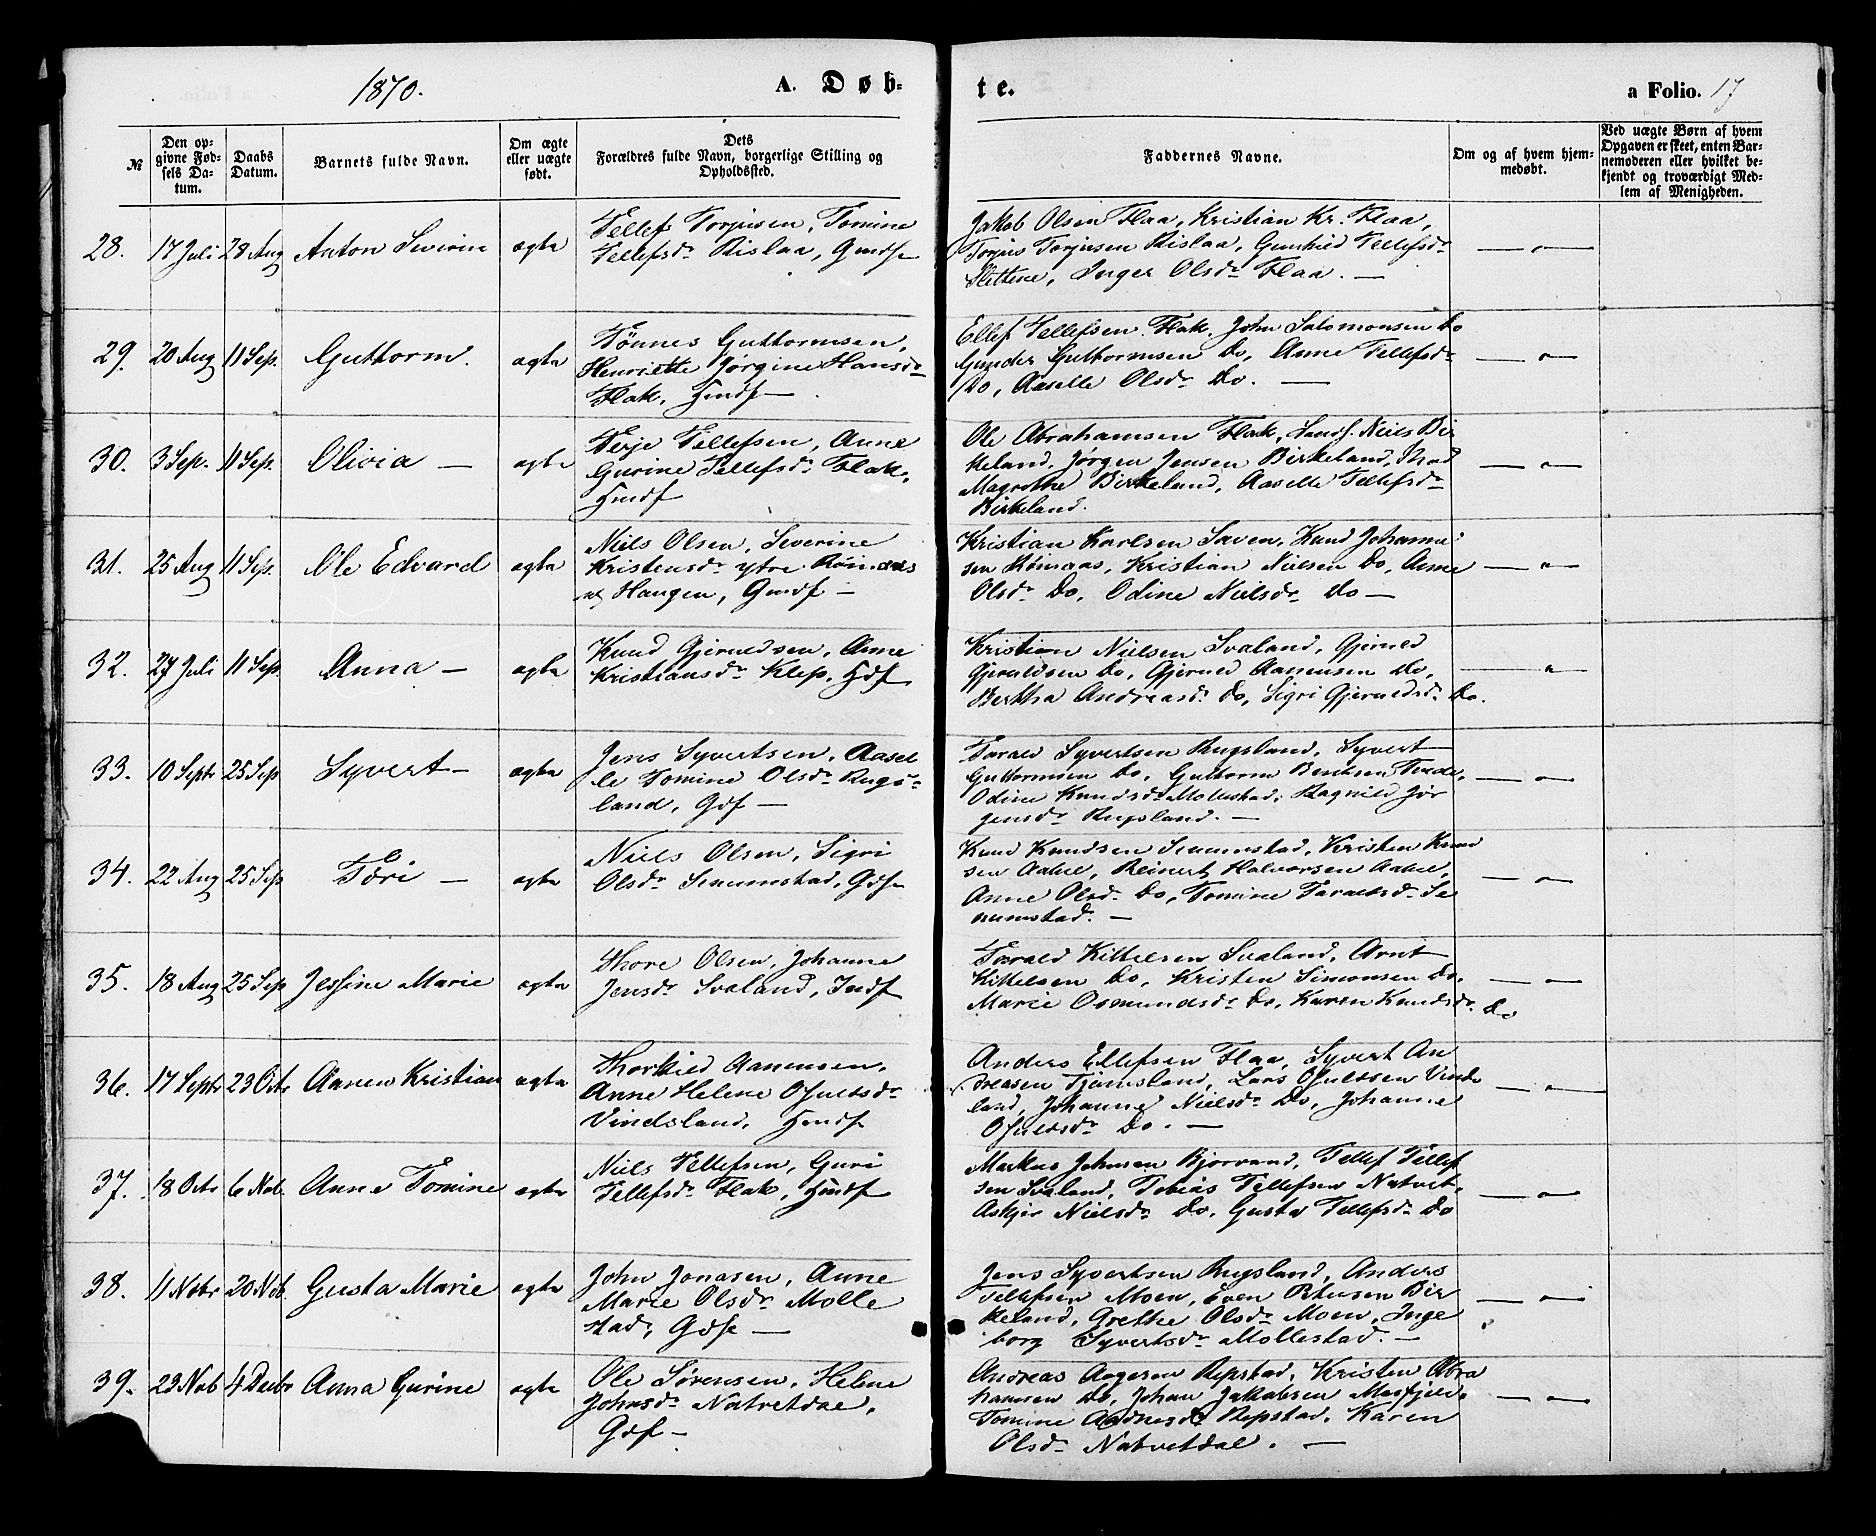 1870.
A. Døb-
te.
a Folio. 17
№
Den op-
givne Fød-
sels Da-
tum.
Daabs
Datum.
Barnets fulde Navn.
Om ægte
eller uægte
født.
Dets
Forældres fulde Navn, borgerlige Stilling og
Opholdssted.
Faddernes Navne.
Om og af hvem hjem-
medøbt.
Ved uægte Børn af hvem
Opgaven er skeet, enten Bar-
nemoderen eller hvilket be-
kjendt og troværdigt Med-
lem af Menigheden.
28. 17 Juli 28 Aug Anton Severin ægte
Tellef Torjusen, Tomine
Tellefsdr Rislaa, Gmdf
Jakob Olsen Flaa, Kristian Kr. Flaa,
Torjus Torjusen Rislaa, Gunhild Tellefsdr
Slettene, Inger Olsdr Flaa. —
29. 20 Aug 11 Sep. Guttorm. ægte
Tønnes Guttormsen,
Henriette Jørgine Hansdr
Flak, Hmdf —
Ellef Tellefsen Flak, John Salomonsen Do
Gunder Guttormsen Do, Anne Tellefsdr
Do, Aaselle Olsdr Do. —
30. 3 Sep. 11 Sep. Olivia — ægte
Terje Tellefsen, Anne
Gurine Tellefsdr Flak,
Hmdf
Ole Abrahamsen Flak, Niels Bir
keland, Jørgen Jensen Birkeland,
Magrethe Birkeland, Aaselle Tellefsdr
Birkeland.
31. 25 Aug 11 Sep. Ole Edvard ægte
Niels Olsen, Severine
Kristensdr ytre Rømaas
Haugen, Gmdf —
Kristian Karlsen Saven, Knud Johanne
sen Rømaas, Kristian Nielsen Do, Anne
Olsdr Do, Odine Nielsdr Do —
32. 27 Juli 11 Sep. Anna — ægte
Knud Gjeruldsen, Anne
Kristiansdr Klep, Hdf
Kristian Nielsen Svaland, Gjeruld
Gjeruldsen Do, Gjeruld Aanensen Do,
Bertha Andreasdr Do, Sigri Gjeruldsdr Do.
33. 10 Septr 25 Sep Syvert — ægte
Jens Syvertsen, Aasel
le Tomine Olsdr Rugs-
land, Gdf —
Tarald Syvertsen Rugsland, Syvert
Guttormsen Do, Guttorm Bentsen
Odine Knudsdr Mollestad, Ragnild Jør
gensdr Rugsland. —
34. 22 Aug 25 Sep Tori — ægte
Niels Olsen, Sigri
Olsdr Senumstad, Gdf
Knud Knudsen Senumstad, Kristen Knud
sen Aabel, Reinert Halvorsen Aabel,
Anne Olsdr Do, Tomine Taraldsdr Se
numstad. —
35. 18 Aug 25 Sep Jessine Marie ægte
Thore Olsen, Johanne
Jensdr Svaland, Indf
Tarald Kittelsen Svaland, Arnt
Kittelsen Do, Kristen Simonsen Do,
Marie Osmundsdr Do, Karen Knudsdr Do
36. 17 Septr 23 Octr Aanen Kristian ægte
Thorkild Aanensen,
Anne Helene Osuldsdr
Vindsland, Hmdf
Anders Ellefsen Flaa, Syvert An
dreasen Tjamsland, Lars Osuldsen Vinds
land, Johanne Nielsdr Do, Johanne
Osuldsdr Do. —
37. 18 Octr 6 Nob. Anne Tomine ægte
Niels Tellefsen, Guri
Tellefsdr Flak, Hmdf
Markus Johnsen Bjorvand, Tellef Tellef
sen Svaland, Tobias Tellefsen Natvet,
Askjer Nielsdr Do, Gusta Tellefsdr Do
38. 11 Nobr 20 Nob. Gusta Marie ægte
John Jonasen, Anne
Marie Olsdr Molle
stad, Gdf —
Jens Syvertsen Rugsland, Anders
Tellefsen Moen, Even Petersen Bir
keland, Grethe Olsdr Moen, Inge
borg Syvertsdr Mollestad. —
39. 23 Nob 4 Decbr Anna Gurine ægte
Ole Sørensen, Helene
Johnsdr Natvetdal,
Gdf —
Andreas Aagesen Repstad, Kristen Abra
hamsen Do, Johan Jakobsen Mosfjeld,
Tomine Aadnesdr Repstad, Karen
Olsdr Natvetdal. —